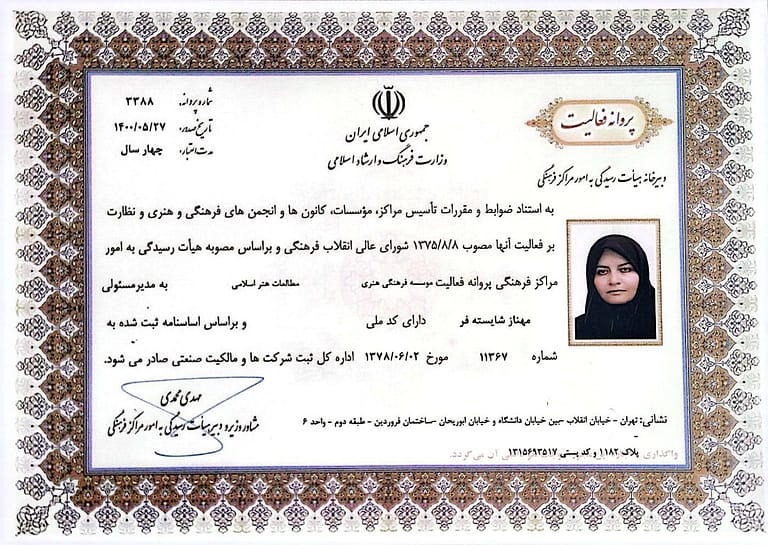 پروانه فعالیت
جمهوری اسلامی ایران
وزارت فرهنگ و ارشاد اسلامی
شماره پروانه: ۳۳۸۸
تاریخ صدور: ۱۴۰۰/۰۵/۲۷
مدت اعتبار: چهار سال
دبیرخانه هیأت رسیدگی به امور مراکز فرهنگی
به استناد ضوابط و مقررات تأسیس مراکز، مؤسسات، کانون ها و انجمن های فرهنگی و هنری و نظارت
بر فعالیت آنها مصوب ۱۳۷۵/۸/۸ شورای عالی انقلاب فرهنگی و براساس مصوبه هیأت رسیدگی به امور
مراکز فرهنگی پروانه فعالیت موسسه فرهنگی هنری مطالعات هنر اسلامی به مدیرمسئولی
مهناز شایسته فر دارای کد ملی و براساس اساسنامه ثبت شده به
شماره ۱۱۳۶۷ مورخ ۱۳۷۸/۰۶/۰۲ اداره کل ثبت شرکت ها و مالکیت صنعتی صادر می شود.
مهدی محمدی
مشاور وزیر و دبیر هیأت رسیدگی به امور مراکز فرهنگی
نشانی: تهران - خیابان انقلاب -بین خیابان دانشگاه و خیابان ابوریحان -ساختمان فروردین - طبقه دوم - واحد ۶
پلاک ۱۱۸۲ و کد پستی ۱۳۱۵۶۹۳۵۱۷
واگذاری آن می‌گردد.